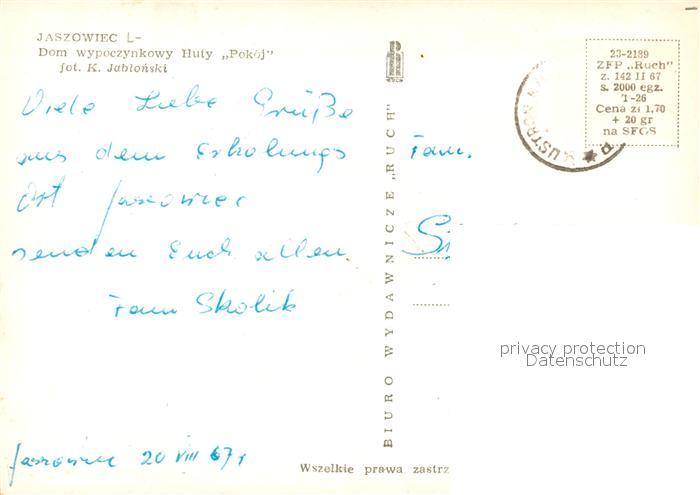 JASZOWIEC L-
Dom wypoczynkowy Huty „Pokój”
fot. K. Jabłoński
Viele Liebe Grüße
aus dem Erholungs
Ort Jaszowiec
senden Euch allen
Fam Skolik
Jaszowiec 20 VIII 67 r
BIURO WYDAWNICZE „RUCH”
Fam.
23-2189
ZFP „Ruch”
z. 142 II 67
s. 2000 egz.
T-26
Cena zł 1,70
+ 20 gr
na SFOS
USTROŃ
privacy protection
Datenschutz
Wszelkie prawa zastrz